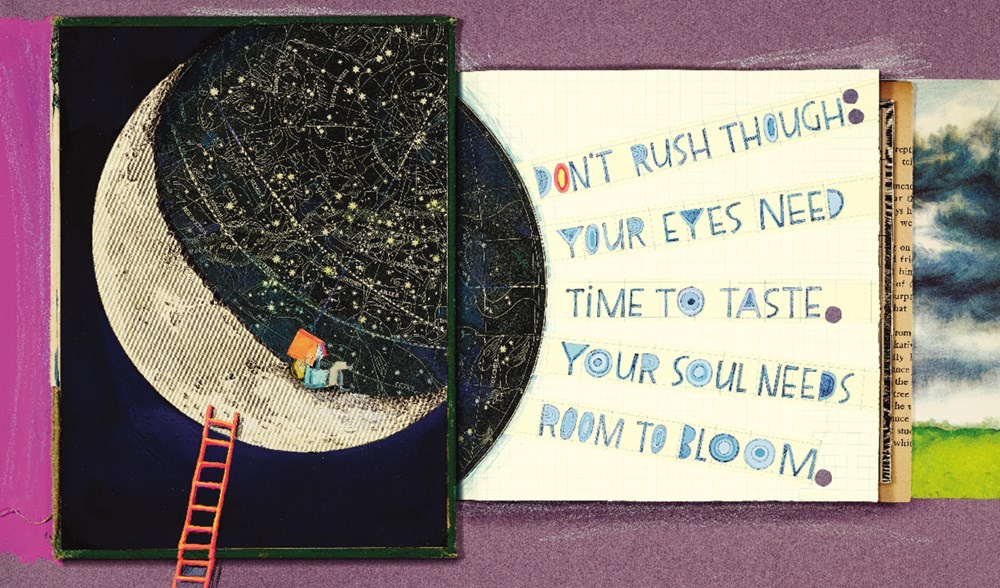 DON'T RUSH THOUGH:
YOUR EYES NEED
TiME TO TASTE.
YOUR SOUL NEEDS
ROOM TO BLOOM.